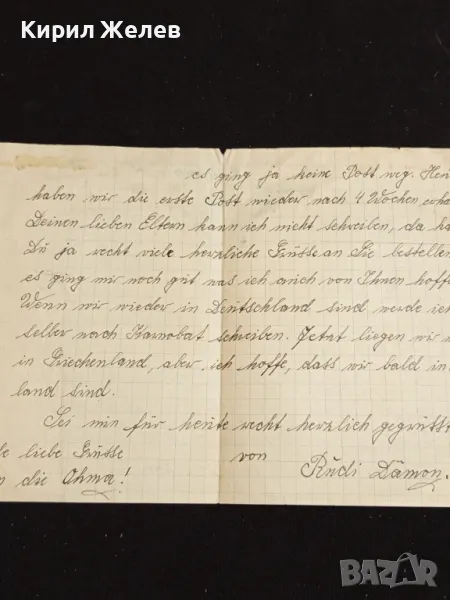 Кирил Желев
es ging ja keine Post weg. Heu
haben wir die erste Post wieder nach 4 Wochen erha
Deinen lieben Eltern kann ich nicht schreiben, da ka
Du ja recht viele herzliche Grüsse an Sie bestellen
es ging mir noch gut was ich auch von Ihnen hoffe
Wenn wir wieder in Deutschland sind werde ich
selber nach Karnobat schreiben. Jetzt liegen wir n
in Griechenland, aber ich hoffe, dass wir bald in
land sind.
Sei nun für heute recht herzlich gegrüsst
von Rudi Damon.
le liebe Grüsse
n die Ohma!
BAZAR